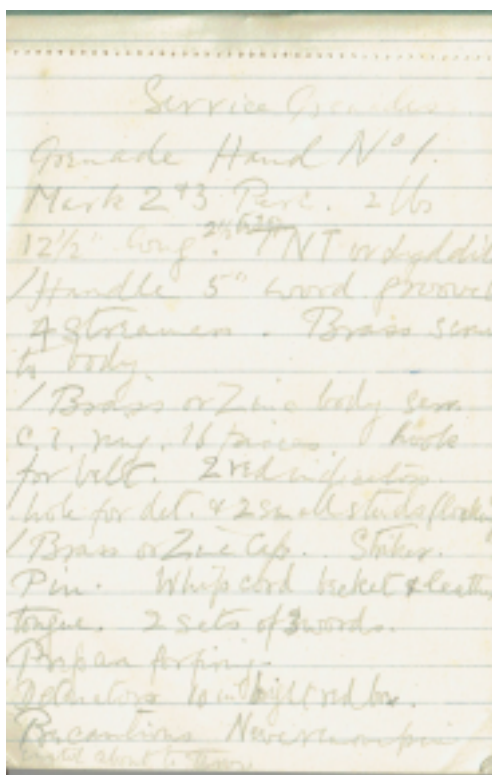 Service Grenades
Grenade Hand No 1.
Mark 2 & 3 Perc. 2 lbs
12½" long. TNT or Lyddite
/Handle 5" wood grooved
4 streamers. Brass
to body.
/Brass or Zinc body
C.I. ring, 16 pieces hook
for belt. 2 red indicators.
hole for det. & 2 small studs
/Brass or Zinc Cap. Striker.
Pin. Whipcord becket &
tongue. 2 sets of 3 words.
Prepare for firing.
Detonators 10 in bright red box.
Precautions Never remove pin
until about to throw